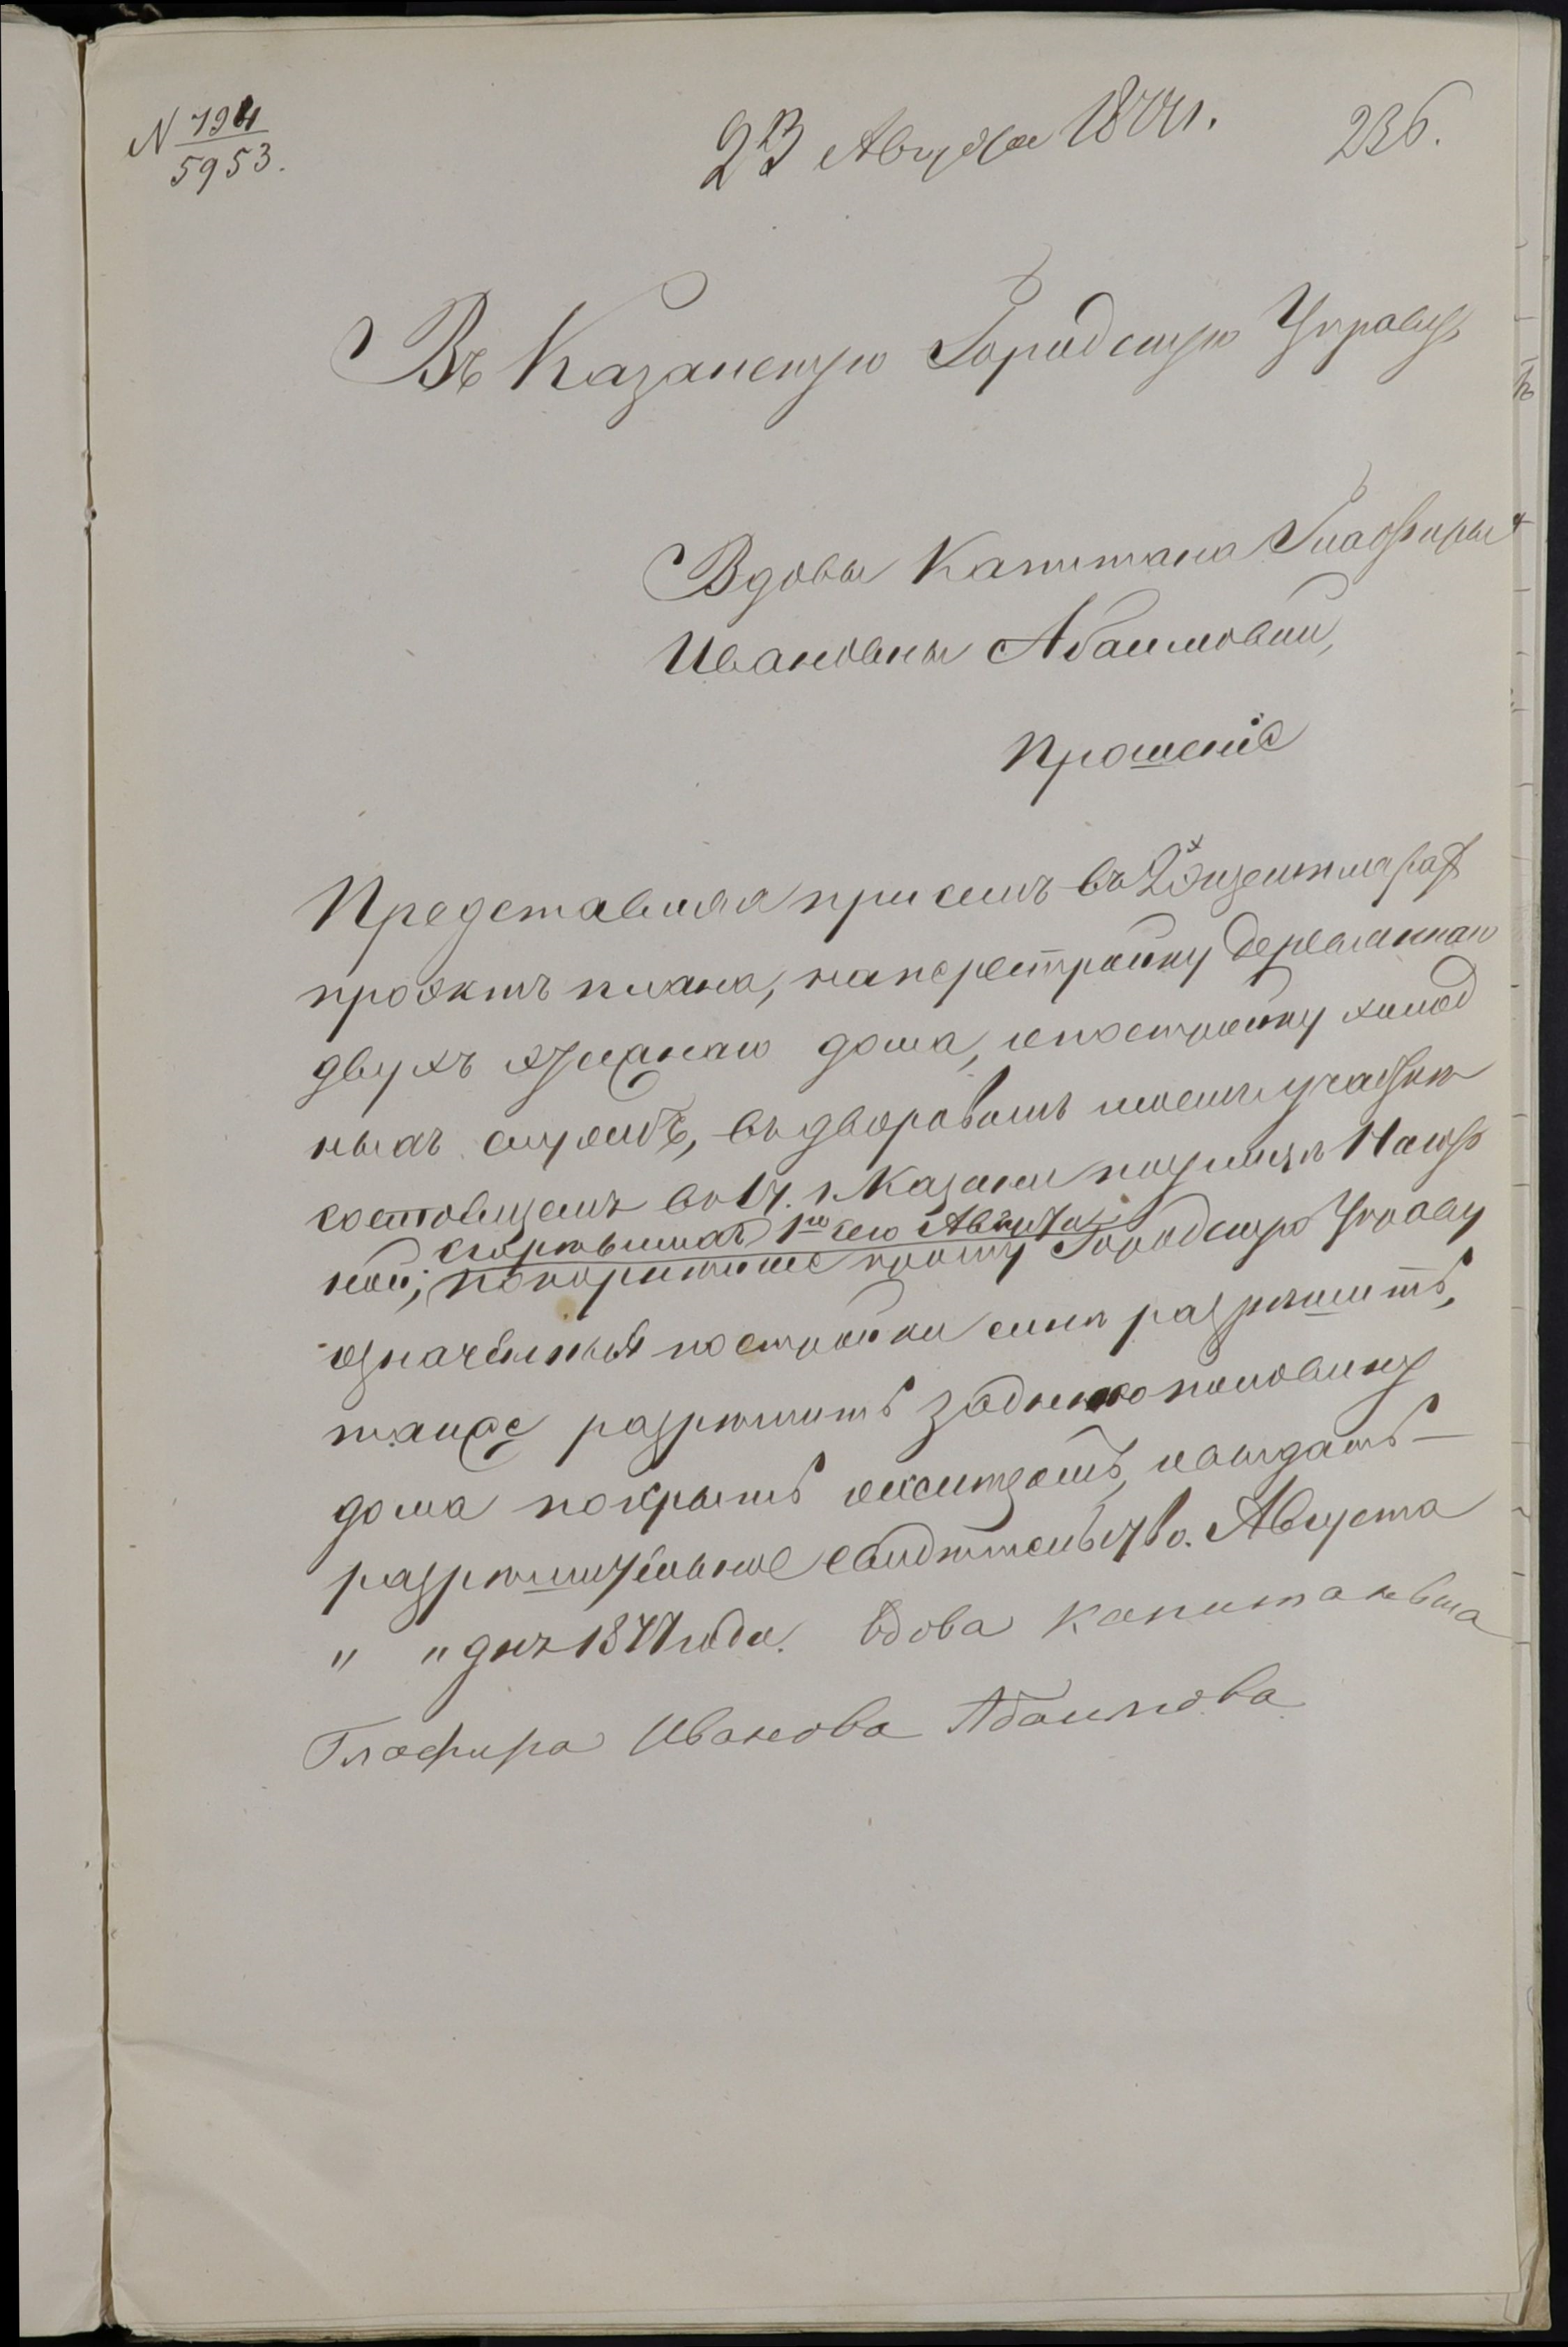 N 7911
5953.
23 Августа 1877 г.
236.
Въ Казанскую Городскую Управу
Вдовы Капитана Глафиры
Ивановны Абаимовой,
Прошеніе
Представляя при семъ въ 2х экземплярах
проэктъ плана, на перестройку деревяннаго
двухъ этажнаго дома, и постройку холод
ныхъ служебъ, въ дворовомъ моемъ участкѣ
состоящемъ въ 1 ч. г. Казани по улицѣ Нагор
сгорѣвшихъ 1го сего Августа
ной; покорнѣйше прошу Городскую Управу
означенныя постройки мнѣ разрѣшить,
также разрѣшить заднюю половину
дома покрыть тесомъ, и выдать
разрѣшительное свидѣтельство. Августа
" " дня 1877 года. Вдова Капитаньша
Глафира Иванова Абаимова